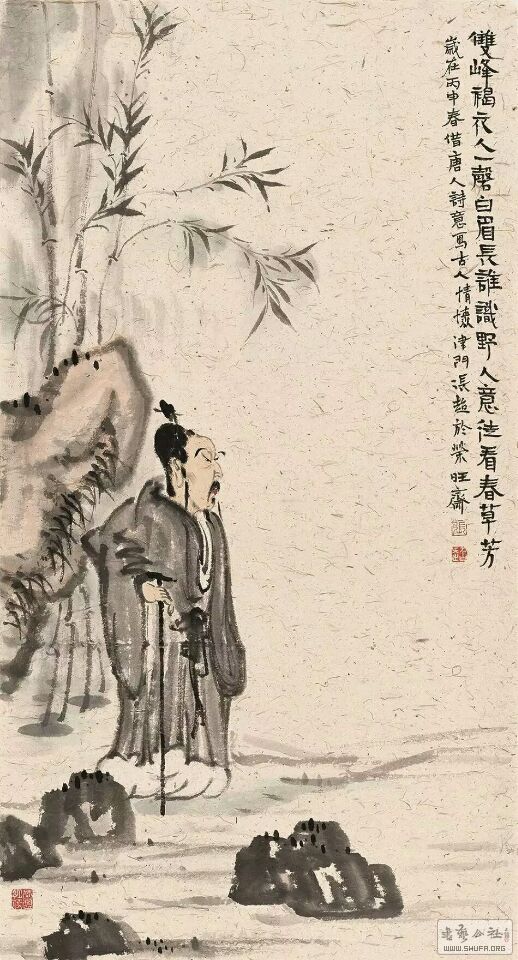 雙峰褐衣人一磬白眉長誰識野人意徒看春草芳
歲在丙申春借唐人詩意寫古人情懷津門張超於榮旺齋
WWW.SHUFA.ORG